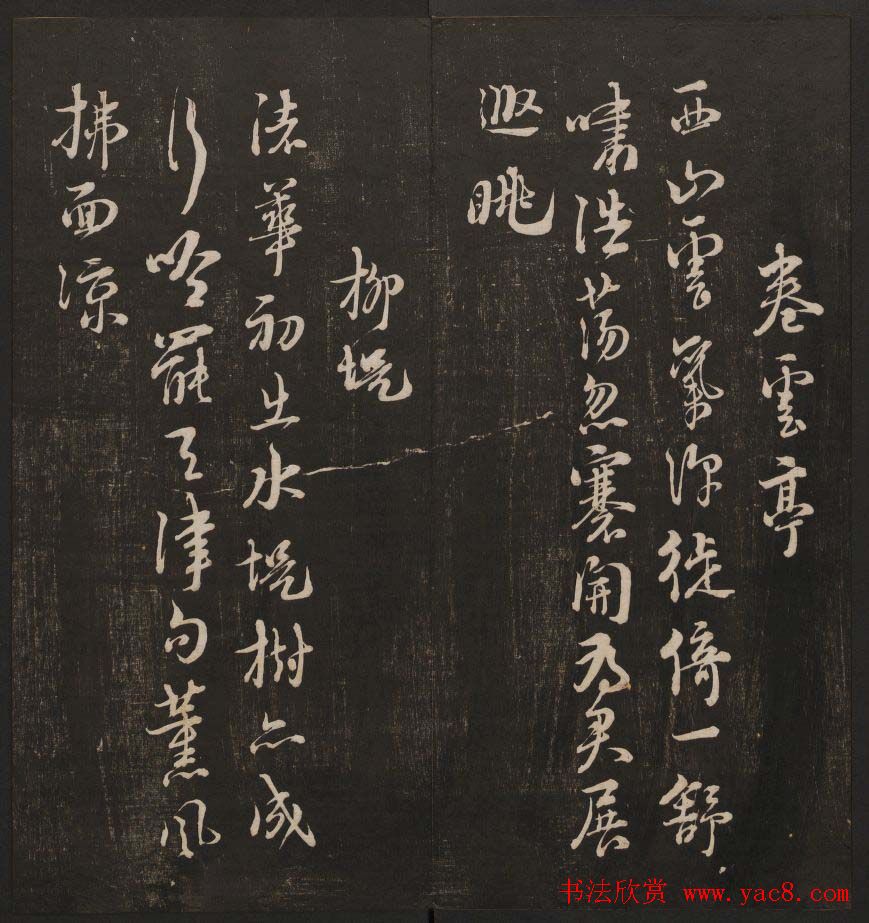 卷雲亭
西山雲氣深徙倚一舒
嘯浩蕩忽褰開為君展
遐眺
柳堤
渚華初出水堤樹亦成
行吟罷天津句薰風
拂面涼
书法欣赏 www.yac8.com